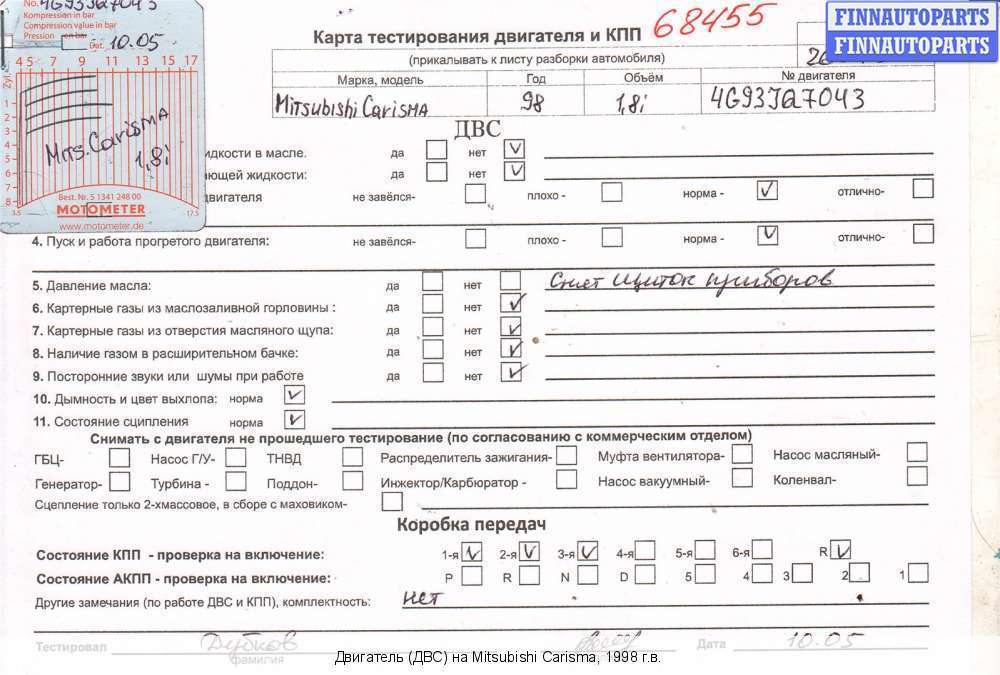 No. 4G93JQ7043
Kompression in bar
Compression value in bar
Pression en bar
Dat. 10.05
4 5 7 9 11 13 15 17
Zyl.
1
2
3
4
5
6
7
8
Mits. Carisma
1,8i
Best. Nr. 5 1341 248 00
MOTOMETER
3.5 17.5
www.motometer.de
FINNAUTOPARTS
FINNAUTOPARTS
68455
Карта тестирования двигателя и КПП
(прикалывать к листу разборки автомобиля)
Марка, модель Год Объём № двигателя
Mitsubishi Carisma 98 1,8i 4G93JQ7043
ДВС
идкости в масле. да нет V
ающей жидкости: да нет V
двигателя не завёлся- плохо - норма - V отлично-
4. Пуск и работа прогретого двигателя: не завёлся- плохо - норма - V отлично-
5. Давление масла: да нет Снят щиток приборов
6. Картерные газы из маслозаливной горловины : да нет V
7. Картерные газы из отверстия масляного щупа: да нет V
8. Наличие газом в расширительном бачке: да нет V
9. Посторонние звуки или шумы при работе да нет V
10. Дымность и цвет выхлопа: норма V
11. Состояние сципления норма V
Снимать с двигателя не прошедшего тестирование (по согласованию с коммерческим отделом)
ГБЦ- Насос Г/У- ТНВД Распределитель зажигания- Муфта вентилятора- Насос масляный-
Генератор- Турбина - Поддон- Инжектор/Карбюратор - Насос вакуумный- Коленвал-
Сцепление только 2-хмассовое, в сборе с маховиком-
Коробка передач
Состояние КПП - проверка на включение: 1-я V 2-я V 3-я V 4-я 5-я 6-я R V
Состояние АКПП - проверка на включение: P R N D 5 4 3 2 1
Другие замечания (по работе ДВС и КПП), комплектность: нет
Тестировал Дубков Дата 10.05
фамилия
Двигатель (ДВС) на Mitsubishi Carisma, 1998 г.в.